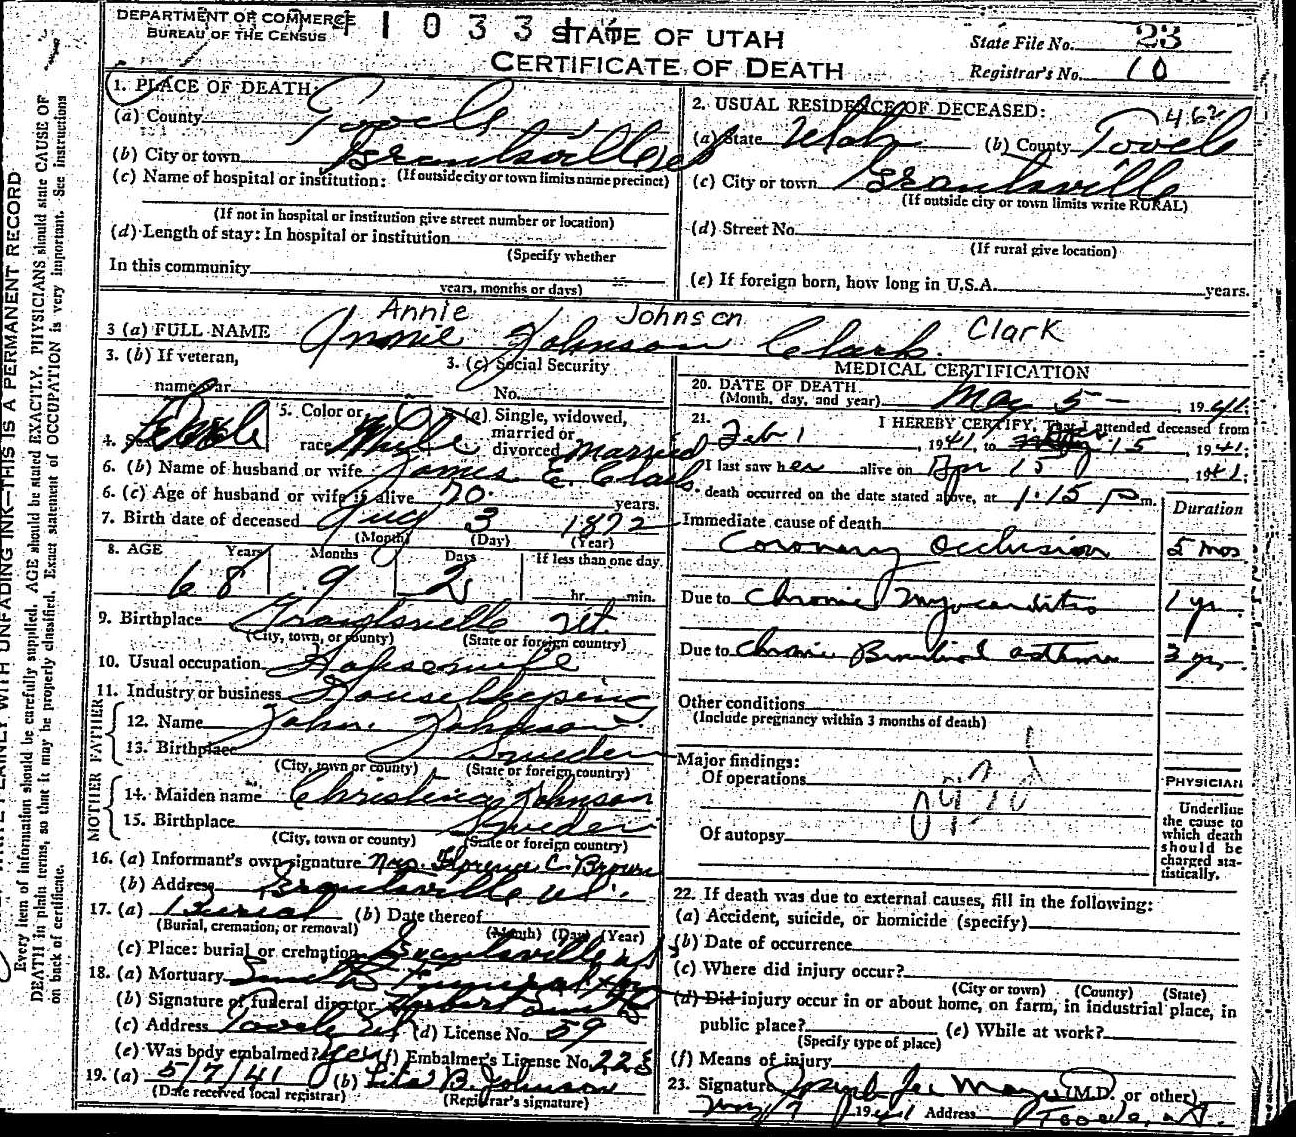 DEPARTMENT OF COMMERCE
BUREAU OF THE CENSUS
1 0 3 3
STATE OF UTAH
CERTIFICATE OF DEATH
State File No. 23
Registrar's No. 10
WRITE PLAINLY WITH UNFADING INK—THIS IS A PERMANENT RECORD
Every item of information should be carefully supplied. AGE should be stated EXACTLY. PHYSICIANS should state CAUSE OF
DEATH in plain terms, so that it may be properly classified. Exact statement of OCCUPATION is very important. See instructions
on back of certificate.
1. PLACE OF DEATH:
(a) County Tooele
(b) City or town Grantsville
(If outside city or town limits name precinct)
(c) Name of hospital or institution:
(If not in hospital or institution give street number or location)
(d) Length of stay: In hospital or institution
(Specify whether
In this community
years, months or days)
2. USUAL RESIDENCE OF DECEASED:
462
(a) State Utah (b) County Tooele
(c) City or town Grantsville
(If outside city or town limits write RURAL)
(d) Street No.
(If rural give location)
(e) If foreign born, how long in U.S.A. years.
Annie Johnson Clark
3 (a) FULL NAME Annie Johnson Clark
3. (b) If veteran,
name war
3. (c) Social Security
No.
4. Sex Female
5. Color or
race White
6. (a) Single, widowed,
married or
divorced Married
6. (b) Name of husband or wife James E. Clark
6. (c) Age of husband or wife if alive 70 years.
7. Birth date of deceased Aug 3 1872
(Month) (Day) (Year)
8. AGE Years Months Days If less than one day
68 9 2 hr. min.
9. Birthplace Grantsville Ut.
(City, town, or county) (State or foreign country)
10. Usual occupation Housewife
11. Industry or business Housekeeping
FATHER
12. Name John Johnson
13. Birthplace Sweden
(City, town or county) (State or foreign country)
MOTHER
14. Maiden name Christina Johnson
15. Birthplace Sweden
(City, town or county) (State or foreign country)
16. (a) Informant's own signature Mrs. Florence C. Brown
(b) Address Grantsville Ut.
17. (a) Burial (b) Date thereof
(Burial, cremation, or removal) (Month) (Day) (Year)
(c) Place: burial or cremation Grantsville
18. (a) Mortuary Smith Funeral
(b) Signature of funeral director Herbert Smith
(c) Address Tooele Ut (d) License No. 59
(e) Was body embalmed? yes (f) Embalmer's License No. 228
19. (a) 5/7/41 (b) Lita B. Johnson
(Date received local registrar) (Registrar's signature)
MEDICAL CERTIFICATION
20. DATE OF DEATH
(Month, day, and year) May 5 — , 1941.
21. I HEREBY CERTIFY, That I attended deceased from
Feb 1, 1941, to 15, 1941;
I last saw her alive on Apr 15, 1941;
death occurred on the date stated above, at 1:15 p m.
Duration
Immediate cause of death
Coronary Occlusion 5 mos
Due to Chronic Myocarditis 1 yr.
Due to Chronic Bronchial asthma 3 yrs.
Other conditions
(Include pregnancy within 3 months of death)
Major findings:
Of operations
Of autopsy
PHYSICIAN
Underline
the cause to
which death
should be
charged sta-
tistically.
22. If death was due to external causes, fill in the following:
(a) Accident, suicide, or homicide (specify)
(b) Date of occurrence
(c) Where did injury occur?
(City or town) (County) (State)
(d) Did injury occur in or about home, on farm, in industrial place, in
public place? (e) While at work?
(Specify type of place)
(f) Means of injury
23. Signature (M.D. or other)
May 7 1941 Address Tooele, Ut.